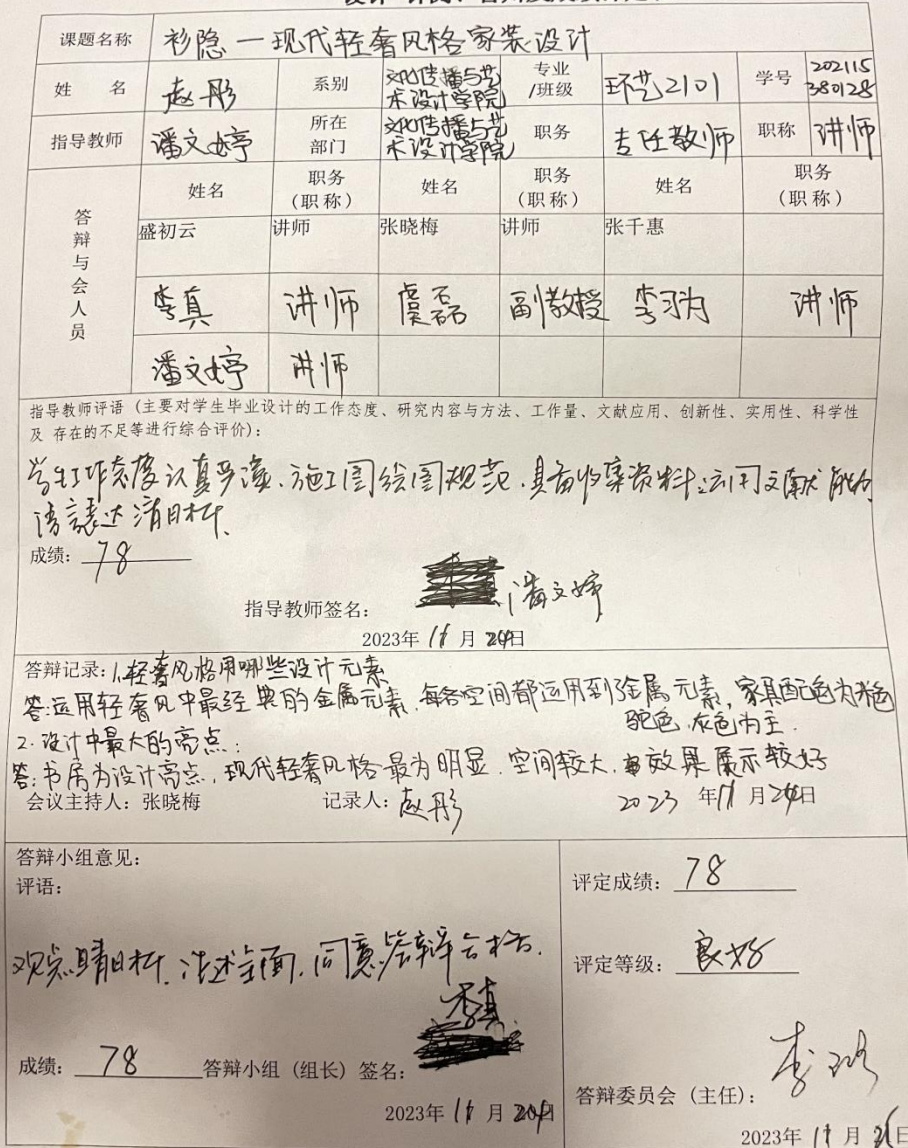 课题名称 衫隐一现代轻奢风格家装设计
姓 名 赵彤 系别 文化传播与艺术设计学院 专业/班级 环艺2101 学号 202115380128
指导教师 潘文婷 所在部门 文化传播与艺术设计学院 职务 专任教师 职称 讲师
答辩与会人员
姓名 职务(职称) 姓名 职务(职称) 姓名 职务(职称)
盛初云 讲师 张晓梅 讲师 张千惠
李真 讲师 虞磊 副教授 李羽为 讲师
潘文婷 讲师
指导教师评语(主要对学生毕业设计的工作态度、研究内容与方法、工作量、文献应用、创新性、实用性、科学性
及 存在的不足等进行综合评价):
学生工作态度认真严谨、施工图绘图规范,具备收集资料运用文献能力,
语言表达清晰.
成绩: 78
指导教师签名: 潘文婷
2023年 11 月 日
答辩记录: 1.轻奢风格用哪些设计元素
答:运用轻奢风中最经典的金属元素,每各空间都运用到了金属元素,家具配色为米色
驼色、灰色为主.
2.设计中最大的亮点:
答:书房为设计亮点,现代轻奢风格最为明显,空间较大,效果展示较好
会议主持人: 张晓梅 记录人: 赵彤 2023 年11月24日
答辩小组意见:
评语:
观点清晰,论述全面,同意答辩合格.
成绩: 78 答辩小组(组长)签名: 李真
2023年 11 月 日
评定成绩: 78
评定等级: 良好
答辩委员会(主任):
2023年 11 月 日